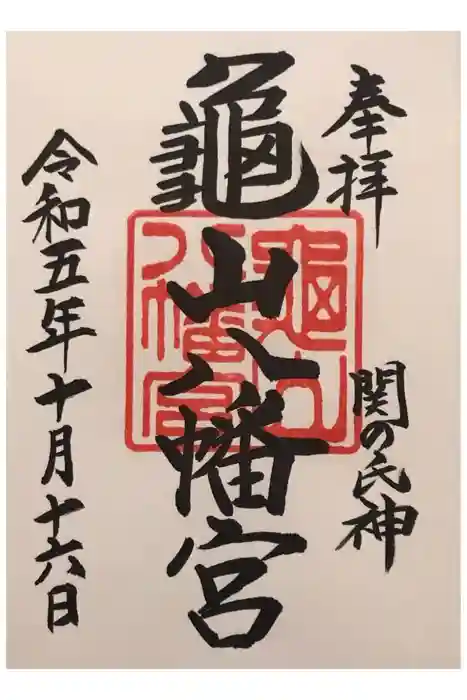 奉拝
関の氏神
龜山八幡宮
龜山八幡宮
令和五年十月十六日